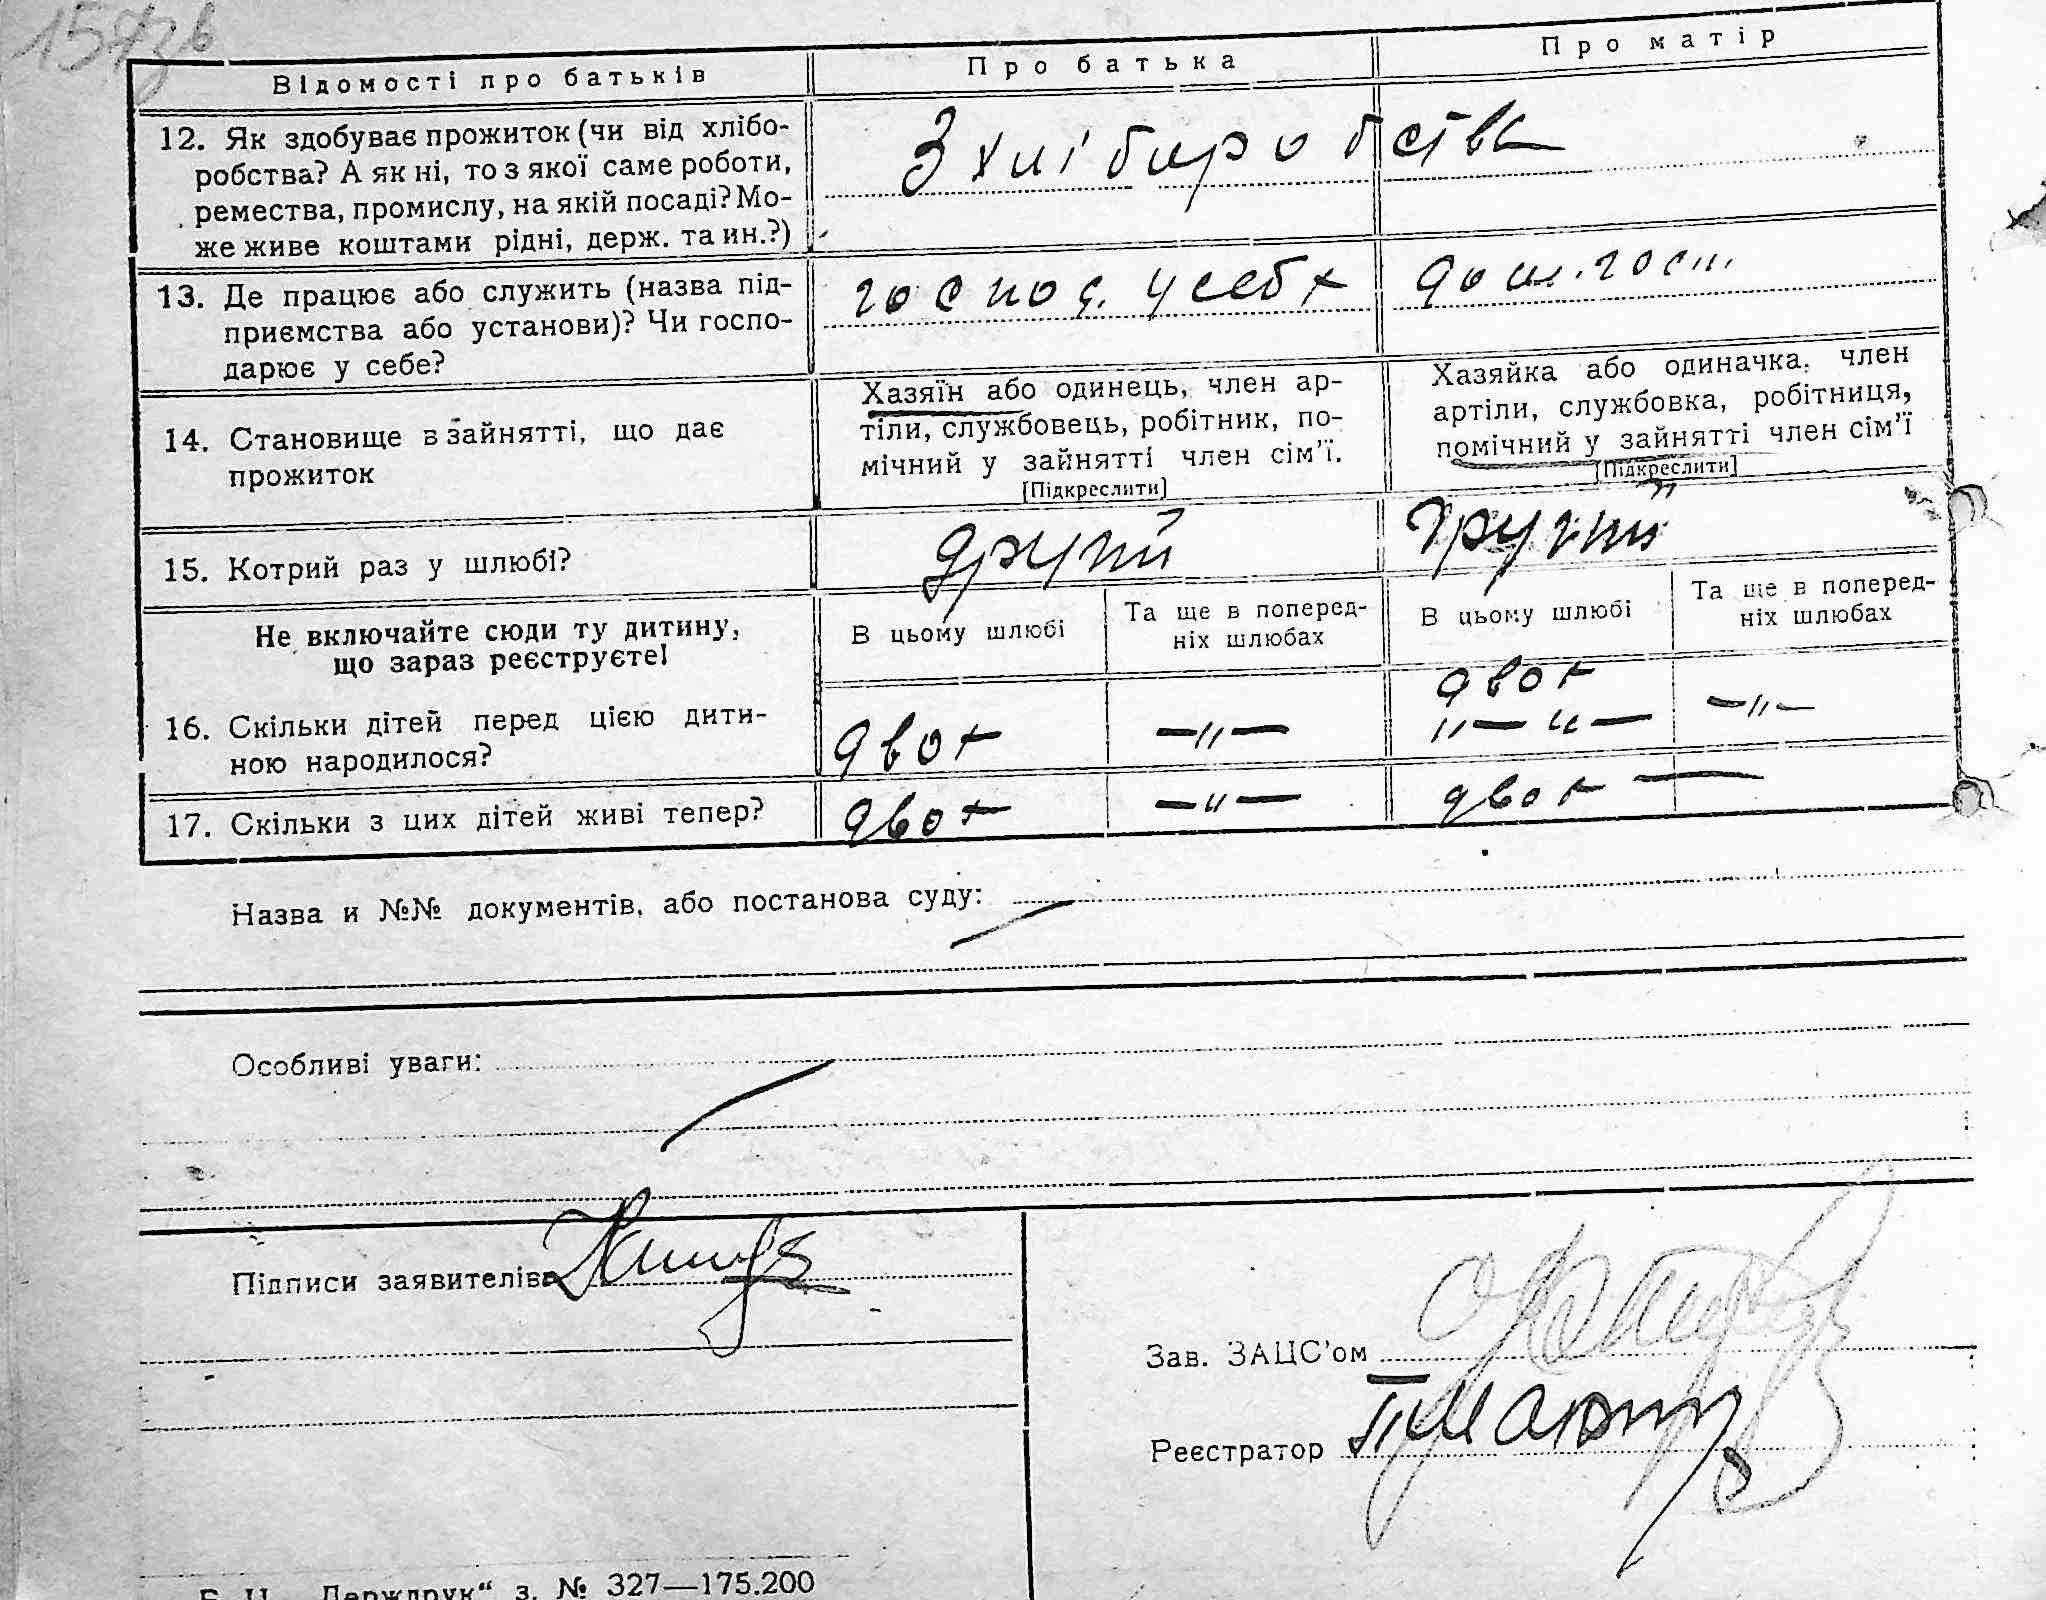 157зв
Відомості про батьків
Про батька
Про матір
12. Як здобуває прожиток (чи від хлібо-
робства? А як ні, то з якої саме роботи,
ремества, промислу, на якій посаді? Мо-
же живе коштами рідні, держ. та ин.?)
З хлібиробства
13. Де працює або служить (назва під-
приємства або установи)? Чи госпо-
дарює у себе?
господ. у себх
дом. госп.
14. Становище в зайнятті, що дає
прожиток
Хазяїн або одинець, член ар-
тіли, службовець, робітник, по-
мічний у зайнятті член сім'ї.
[Підкреслити]
Хазяйка або одиначка, член
артіли, службовка, робітниця,
помічний у зайнятті член сім'ї
[Підкреслити]
15. Котрий раз у шлюбі?
другий
другий
Не включайте сюди ту дитину,
що зараз реєструєте!
В цьому шлюбі
Та ще в поперед-
ніх шлюбах
В цьому шлюбі
Та ще в поперед-
ніх шлюбах
16. Скільки дітей перед цією дити-
ною народилося?
двох
—"—
двох
"— "—
—"—
17. Скільки з цих дітей живі тепер?
двох
—"—
двох —
Назва и №№ документів, або постанова суду:
Особливі уваги:
Підписи заявителів
Зав. ЗАЦС'ом
Реєстратор
Держдрук" з. № 327—175.200